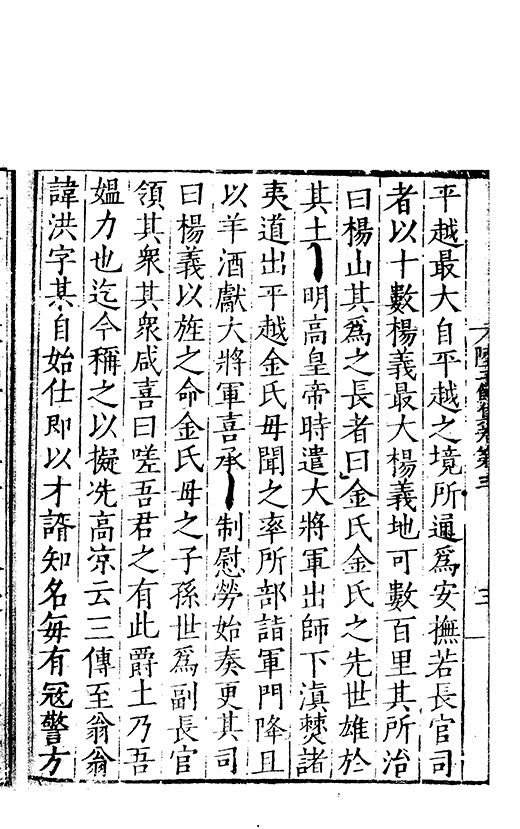 平越最大自平越之境所通爲安撫若長官司
者以十數楊義最大楊義地可數百里其所治
曰楊山其爲之長者曰金氏金氏之先世雄於
其土明高皇帝時遣大將軍出師下滇僰諸
夷道出平越金氏母聞之率所部詣軍門降且
以羊酒獻大將軍喜承制慰勞始奏更其司
曰楊義以旌之命金氏母之子孫世爲副長官
領其衆其衆咸喜曰嗟吾君之有此爵土乃吾
媼力也迄今稱之以擬冼高凉云三傳至翁翁
諱洪字某自始仕即以才諝知名每有冦警方